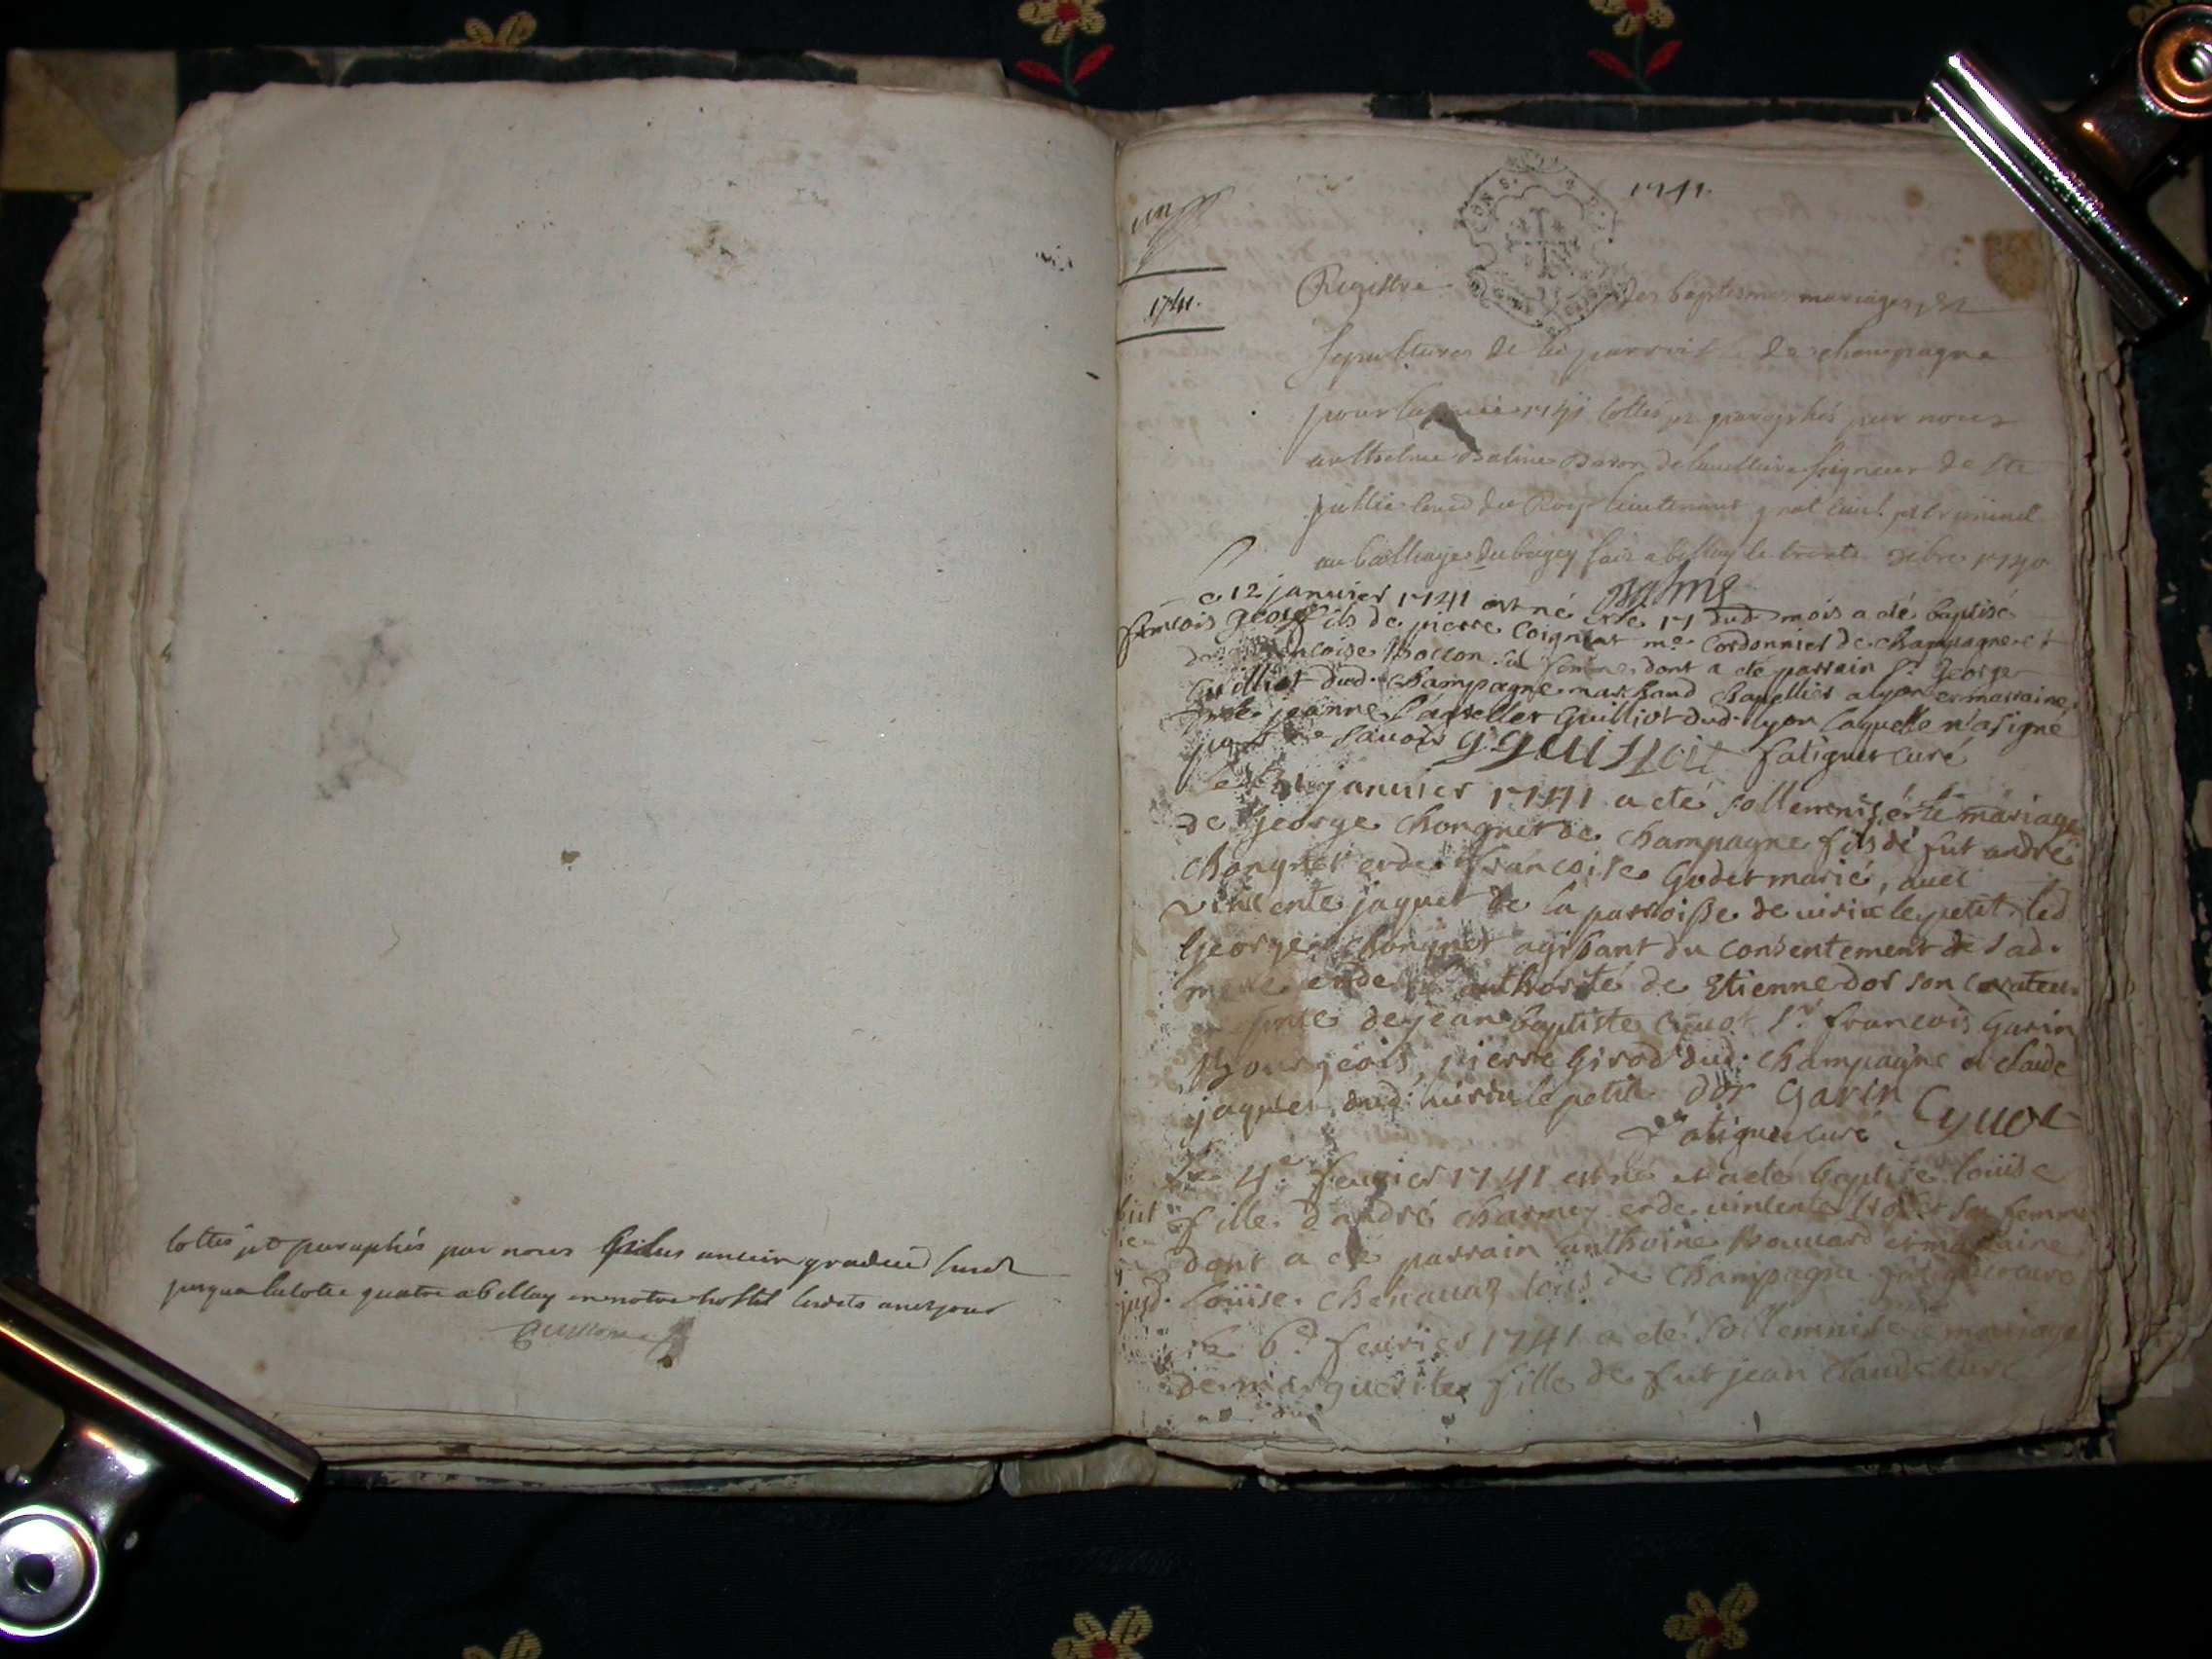 cottés et paraphés par nous ancien gradué
jusqua la cotte quatre a bellay en notre hostel
un
1741.
1741.
Registre des baptesmes mariages et
sepultures de la parroisse de champagne
pour lannée 1741 cottés et paraphés par nous
anthelme Balme Baron de seigneur de Ste
Julie cons.er du Roy lieutenant g.nal civil et criminel
au bailliage du bugey fait a bellay le trente xbre 1740
Balme
Le 12 janvier 1741 est né et le 17 dud. mois a été baptisé
francois george fils de pierre Coignat m.e Cordonnier de champagne et
de francoise Boccon sa femme dont a été parrain s.r George
Guilliot dud. champagne marchand chapellier a lyon et marraine
jeanne Guilliot dud. lyon laquelle n'a signé
pour ne savoir g guilliot fatiguet curé
Le 31 janvier 1741 a eté sollemnisé le mariage
de George Chongnet de champagne fils de fut andré
Chongnet et de francoise Godet marié, avec
vincente jaquet de la parroisse de virieu le petit. led
George Chongnet agissant du consentement de sad.
mere et de l'authorité de Etienne dor son curateur
en p.nce de jean baptiste Cyvot s.r francois Garin
Bourgeois, pierre Girod dud. champagne et claude
jaquet dud. virieu le petit Dor Garin Cyvot
fatiguet curé
Le 4.e fevrier 1741 est né et a eté baptisé loüise
fille d'andré charmey et de vincente sa femme
dont a eté parrain anthoine Bouvard et marraine
loüise. chenavaz tous de champagne fatiguet curé
Le 6.e fevrier 1741 a eté sollemnisé le mariage
de marguerite fille de fut jean claude